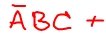 A̅BC +